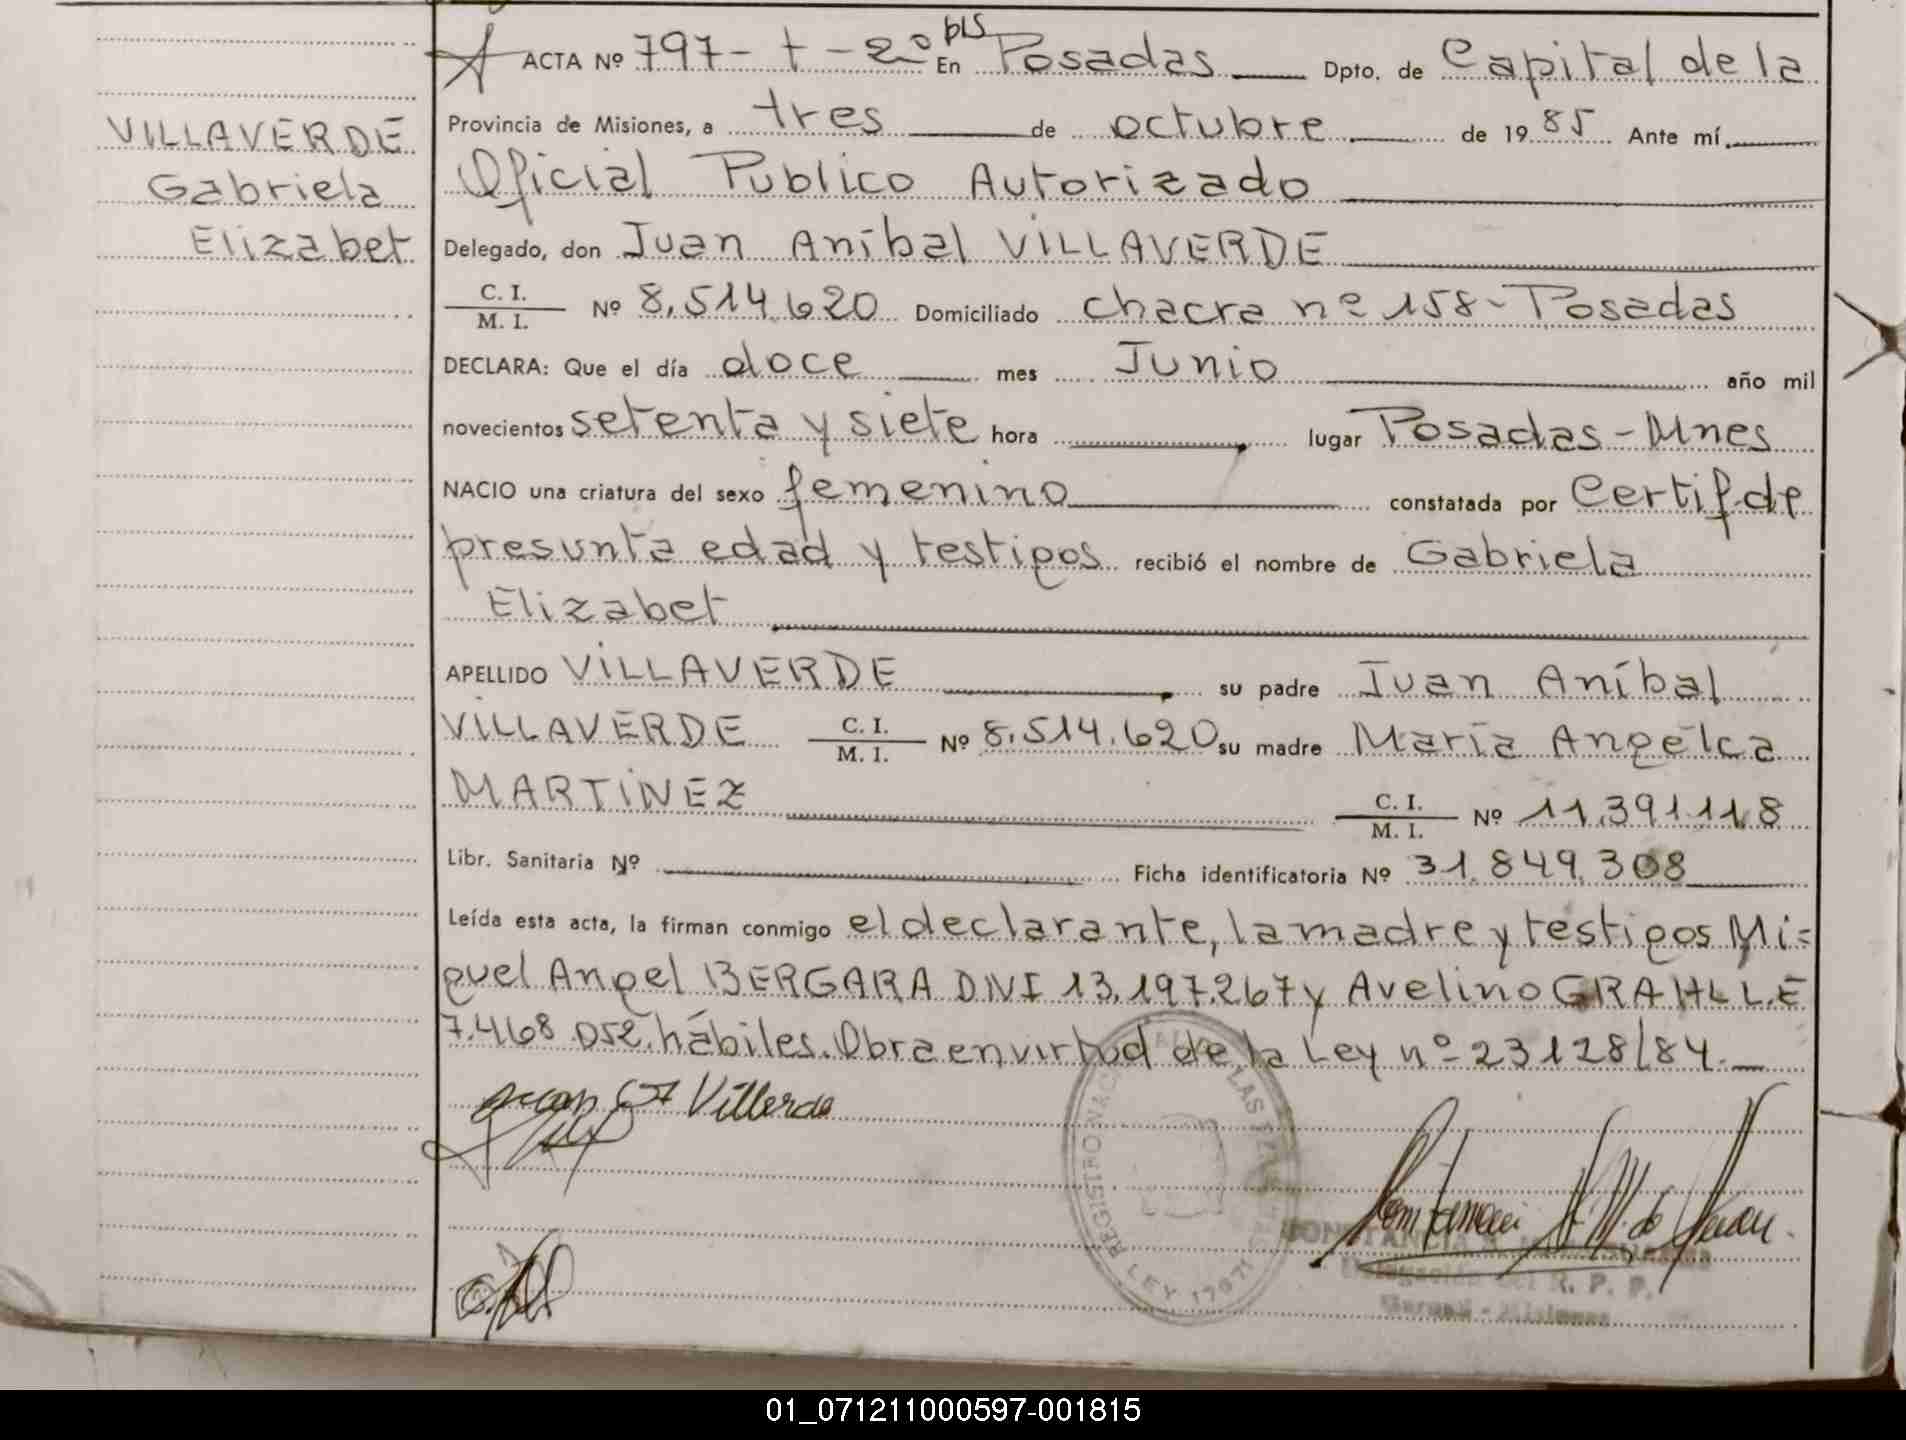 VILLAVERDE
Gabriela
Elizabet
ACTA Nº 797 - t - 2º pls En Posadas Dpto. de Capital de la
Provincia de Misiones, a tres de octubre de 1985 Ante mí,
Oficial Publico Autorizado
Delegado, don Juan Aníbal VILLAVERDE
C. I.
M. I. Nº 8.514.620 Domiciliado chacra nº 158 - Posadas
DECLARA: Que el día doce mes Junio año mil
novecientos setenta y siete hora lugar Posadas - Mnes
NACIO una criatura del sexo femenino constatada por Certif de
presunta edad y testigos recibió el nombre de Gabriela
Elizabet
APELLIDO VILLAVERDE su padre Juan Aníbal
VILLAVERDE C. I.
M. I. Nº 8.514.620 su madre María Angélca
MARTINEZ C. I.
M. I. Nº 11.391.118
Libr. Sanitaria Nº Ficha identificatoria Nº 31.849.308
Leída esta acta, la firman conmigo el declarante, la madre y testigos Mi=
guel Angel BERGARA DNI 13.197.267 y Avelino GRAHL L.E
7.468.052. hábiles. Obra en virtud de la Ley nº 23128/84.
REGISTRO NACIONAL DE LAS PERSONAS
LEY 17671
Delegación del R. P. P.
Misiones
01_071211000597-001815